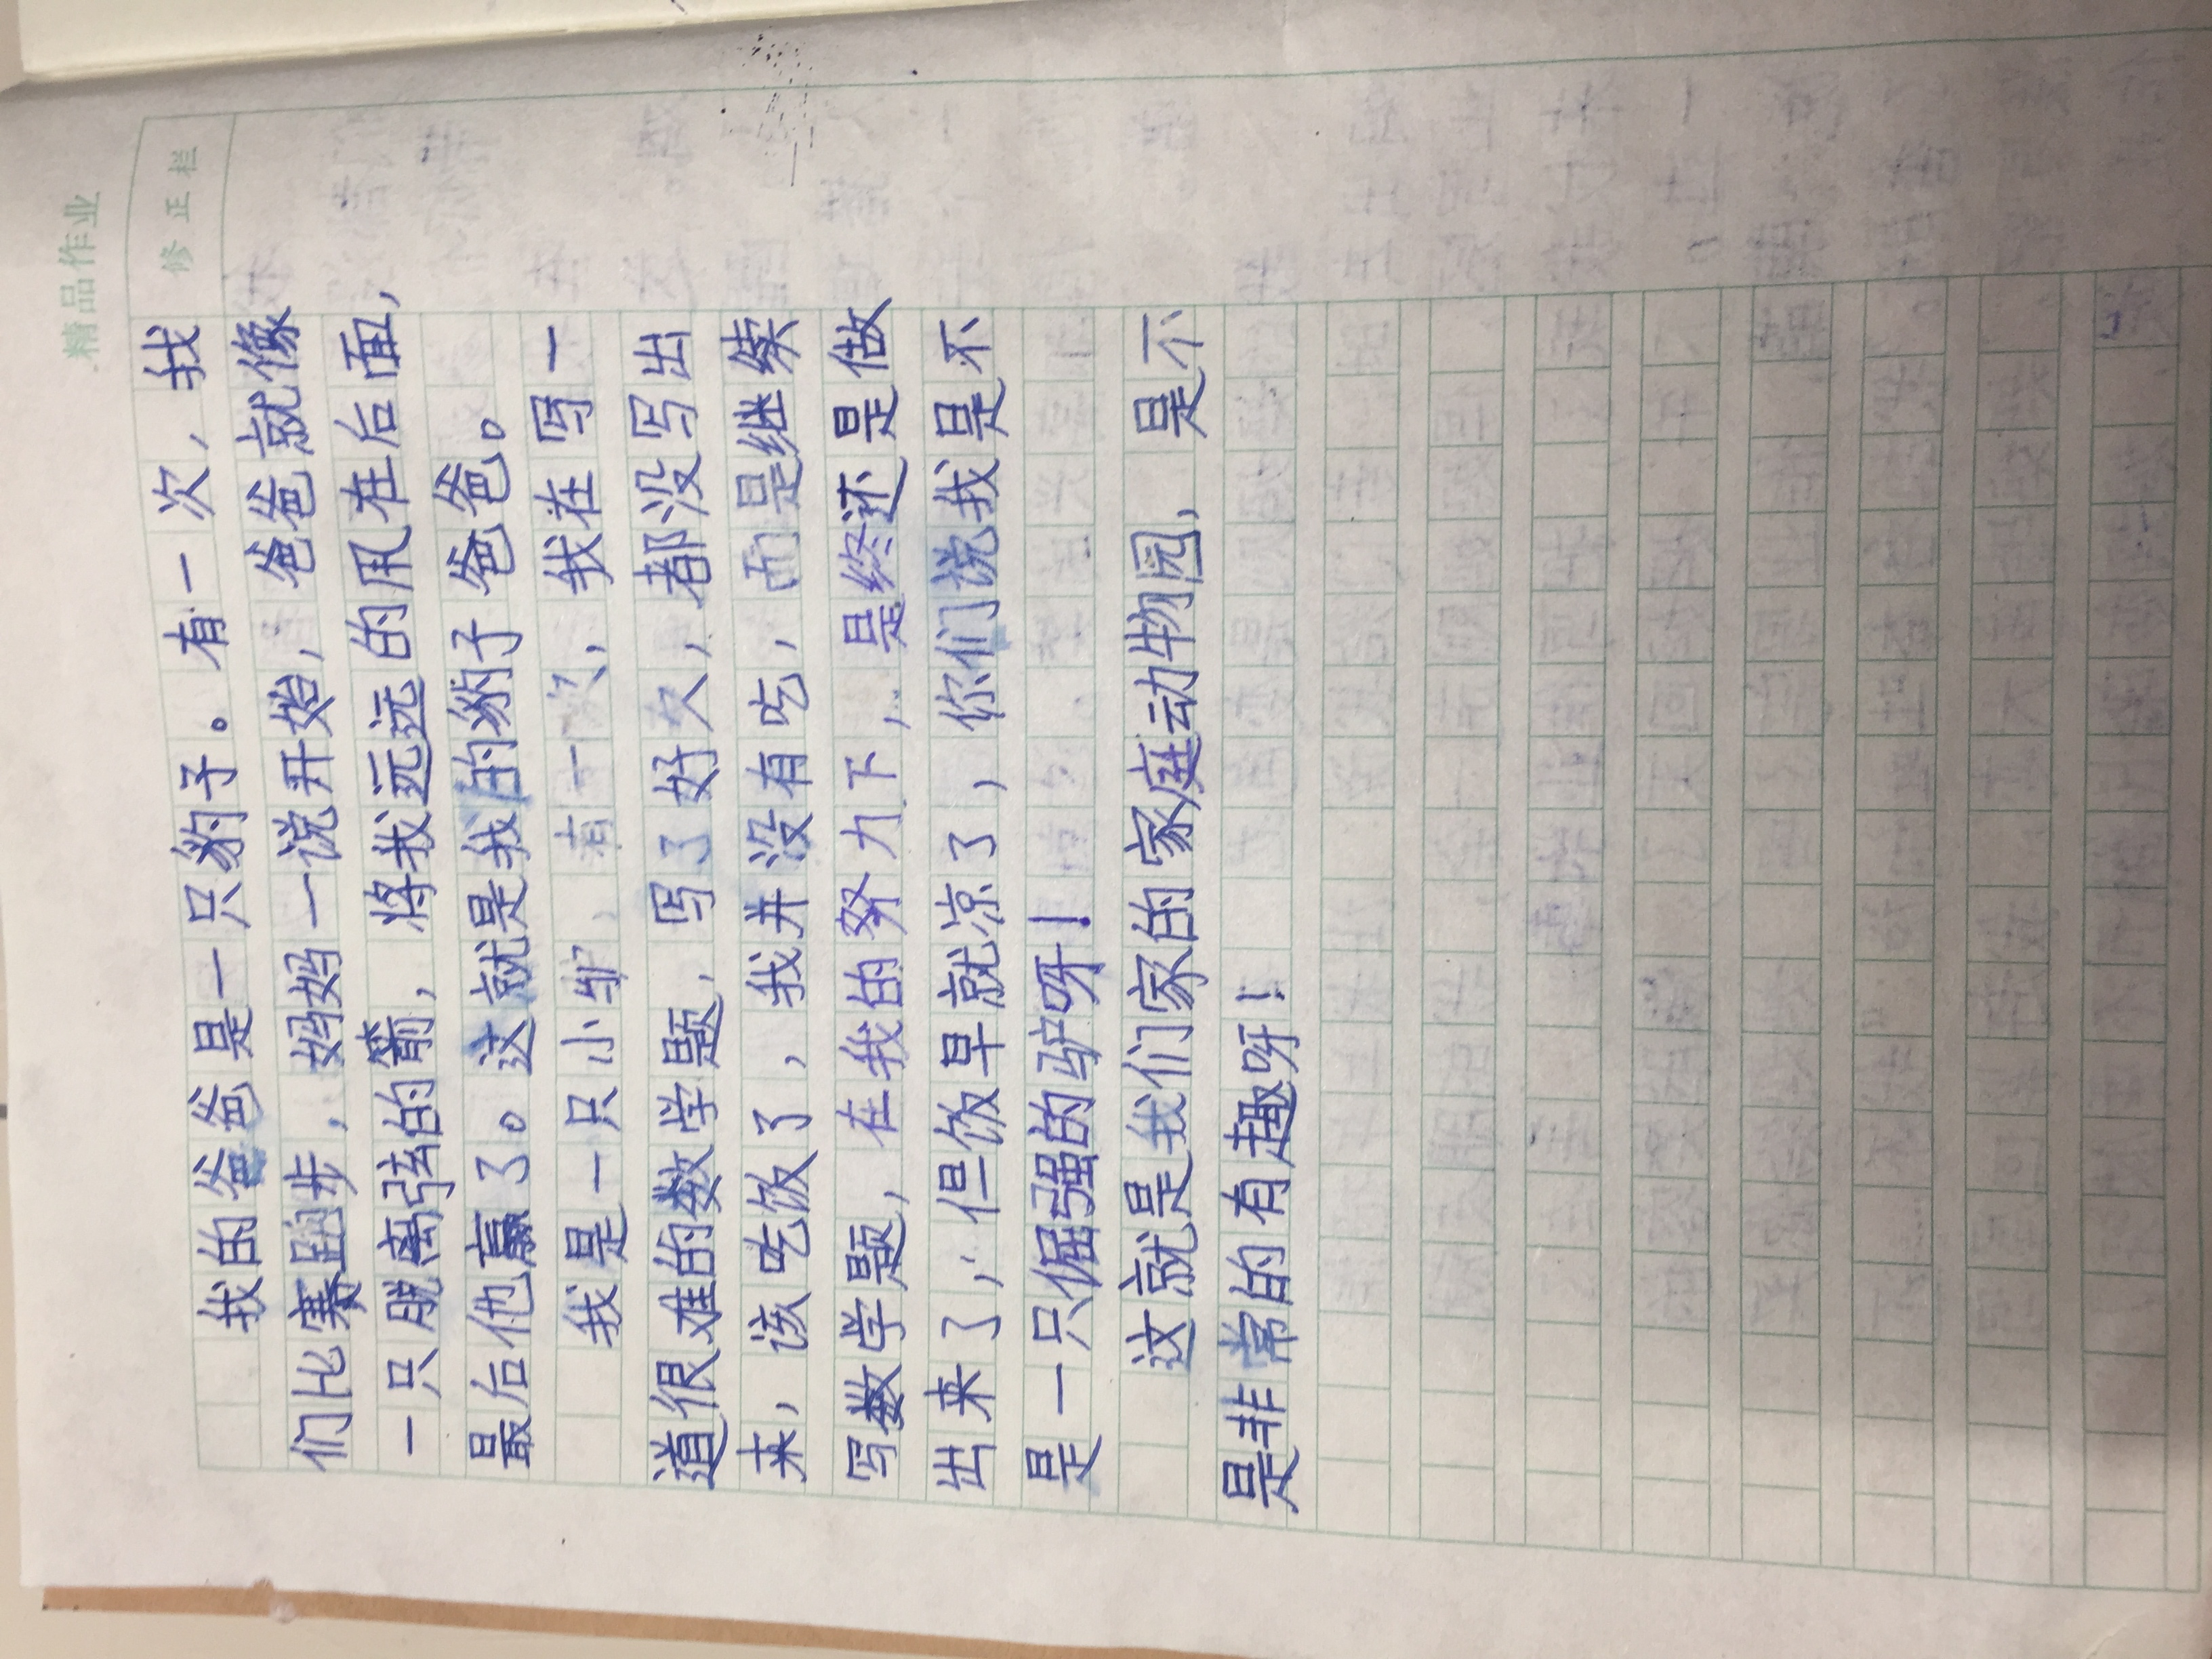 精品作业
修正栏
我的爸爸是一只豹子。有一次，我
们比赛跑步，妈妈一说开始，爸爸就像
一只脱离弦的箭，将我远远的甩在后面，
最后他赢了。这就是我的豹子爸爸。
我是一只小驴，有一次，我在写一
道很难的数学题，写了好久，都没写出
来，该吃饭了，我并没有吃，而是继续
写数学题，在我的努力下，是终还是做
出来了，但饭早就凉了，你们说我是不
是一只倔强的驴呀！
这就是我们家的家庭动物园，是不
是非常的有趣呀！